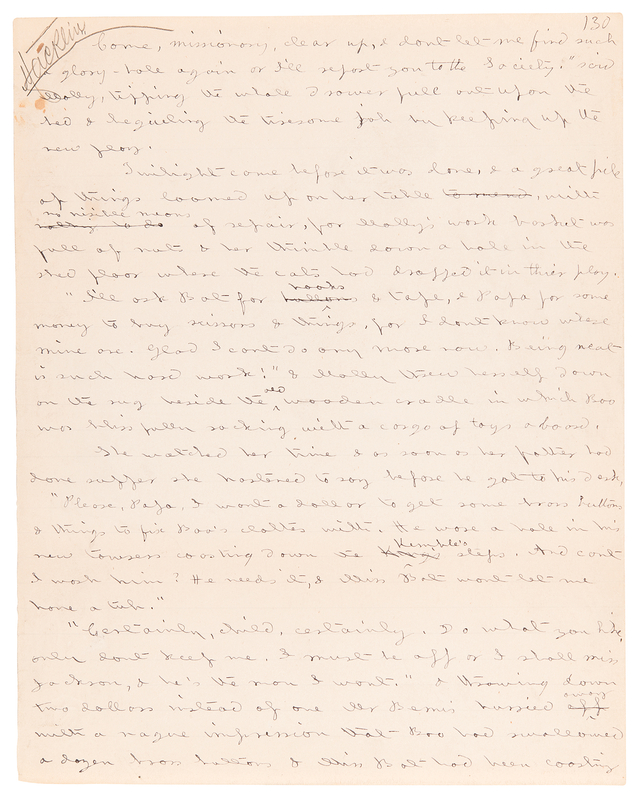 130
Come, missionary, clear up, & dont let me find such
a glory-hole again or I'll report you to the Society!" said
Molly, tipping the whole drawer full out upon the
bed & beguiling the tiresome job by keeping up the
new play.
Twilight came before it was done, & a great pile
of things loomed up on her table to mend, with
no visible means
of repair, for Molly's work basket was
full of nuts & her thimble down a hole in the
shed floor where the cats had dragged it in their play.
hooks
"I'll ask Bat for buttons & tape, & Papa for some
money to buy scissors & things, for I dont know where
mine are. Glad I cant do any more now. Being neat
is such hard work!" & Molly threw herself down
old
on the rug beside the wooden cradle in which Boo
was blissfully rocking with a cargo of toys aboard.
She watched her time & as soon as her father had
done supper she hastened to say before he got to his desk,
"Please, Papa, I want a dollar to get some brass buttons
& things to fix Boo's clothes with. He wore a hole in his
Kemble's
new trowsers coasting down the steps. And cant
I wash him? He needs it, & Miss Bat wont let me
have a tub."
"Certainly, child, certainly. Do what you like,
only dont keep me. I must be off or I shall miss
Jackson, & he's the man I want." & throwing down
away
two dollars instead of one Mr Bemis hurried off
with a vague impression that Boo had swallowed
a dozen brass buttons & Miss Bat had been coasting